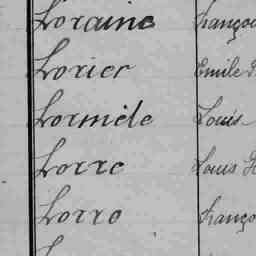 Loraine Franço
Lorier Emile
Lormèle Louis
Lorre Louis
Lorro Franço